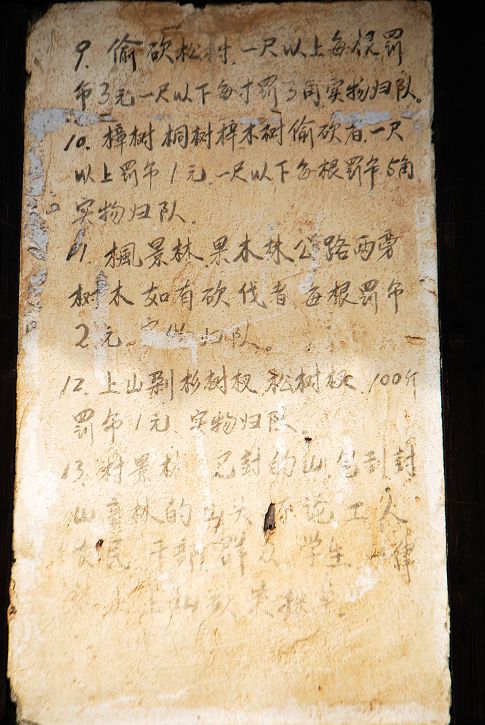 9. 偷砍松树,一尺以上每根罚
币3元一尺以下每寸罚3角实物归队。
10. 樟树桐树梓木树偷砍者,一尺
以上罚币1元,一尺以下每根罚币5角
实物归队。
11. 楓景林、果木林公路两旁
树木如有砍伐者,每根罚币
2元 实物归队。
12. 上山剐杉树杈、松树杈,100斤
罚币1元,实物归队。
13. 村景林 已封的山 封
山育林的山头 不论工人
农民 干部 群众 学生 一律
上山砍柴